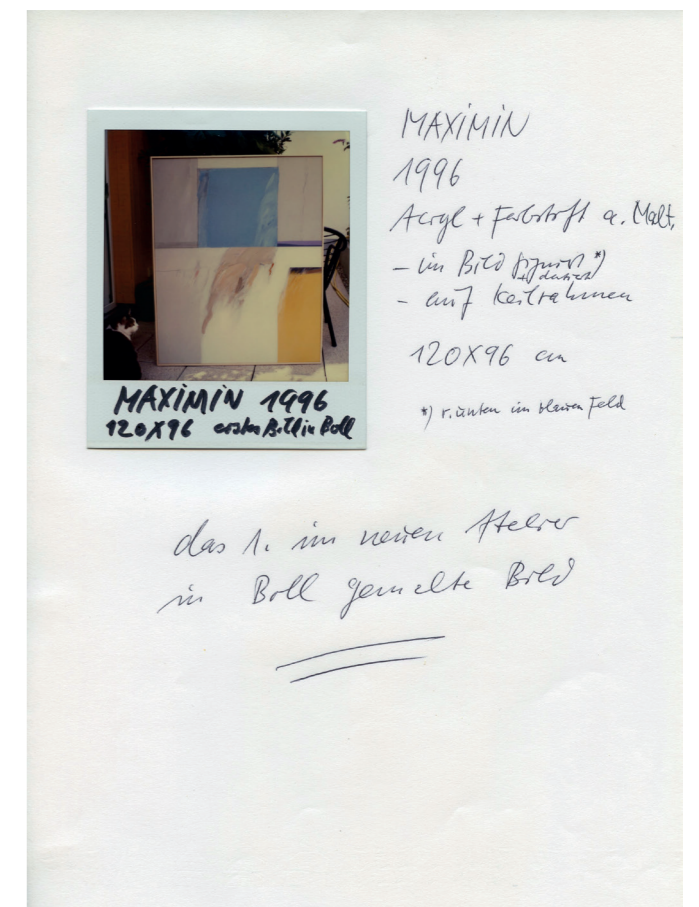 MAXIMIN 1996
120X96 erstes Bild in Boll
MAXIMIN
1996
Acryl + Farbstift a. Malt.
- im Bild signiert *)
+ datiert
- auf Keilrahmen
120X96 cm
*) r. unten im blauen Feld
das 1. im neuen Atelier
in Boll gemalte Bild